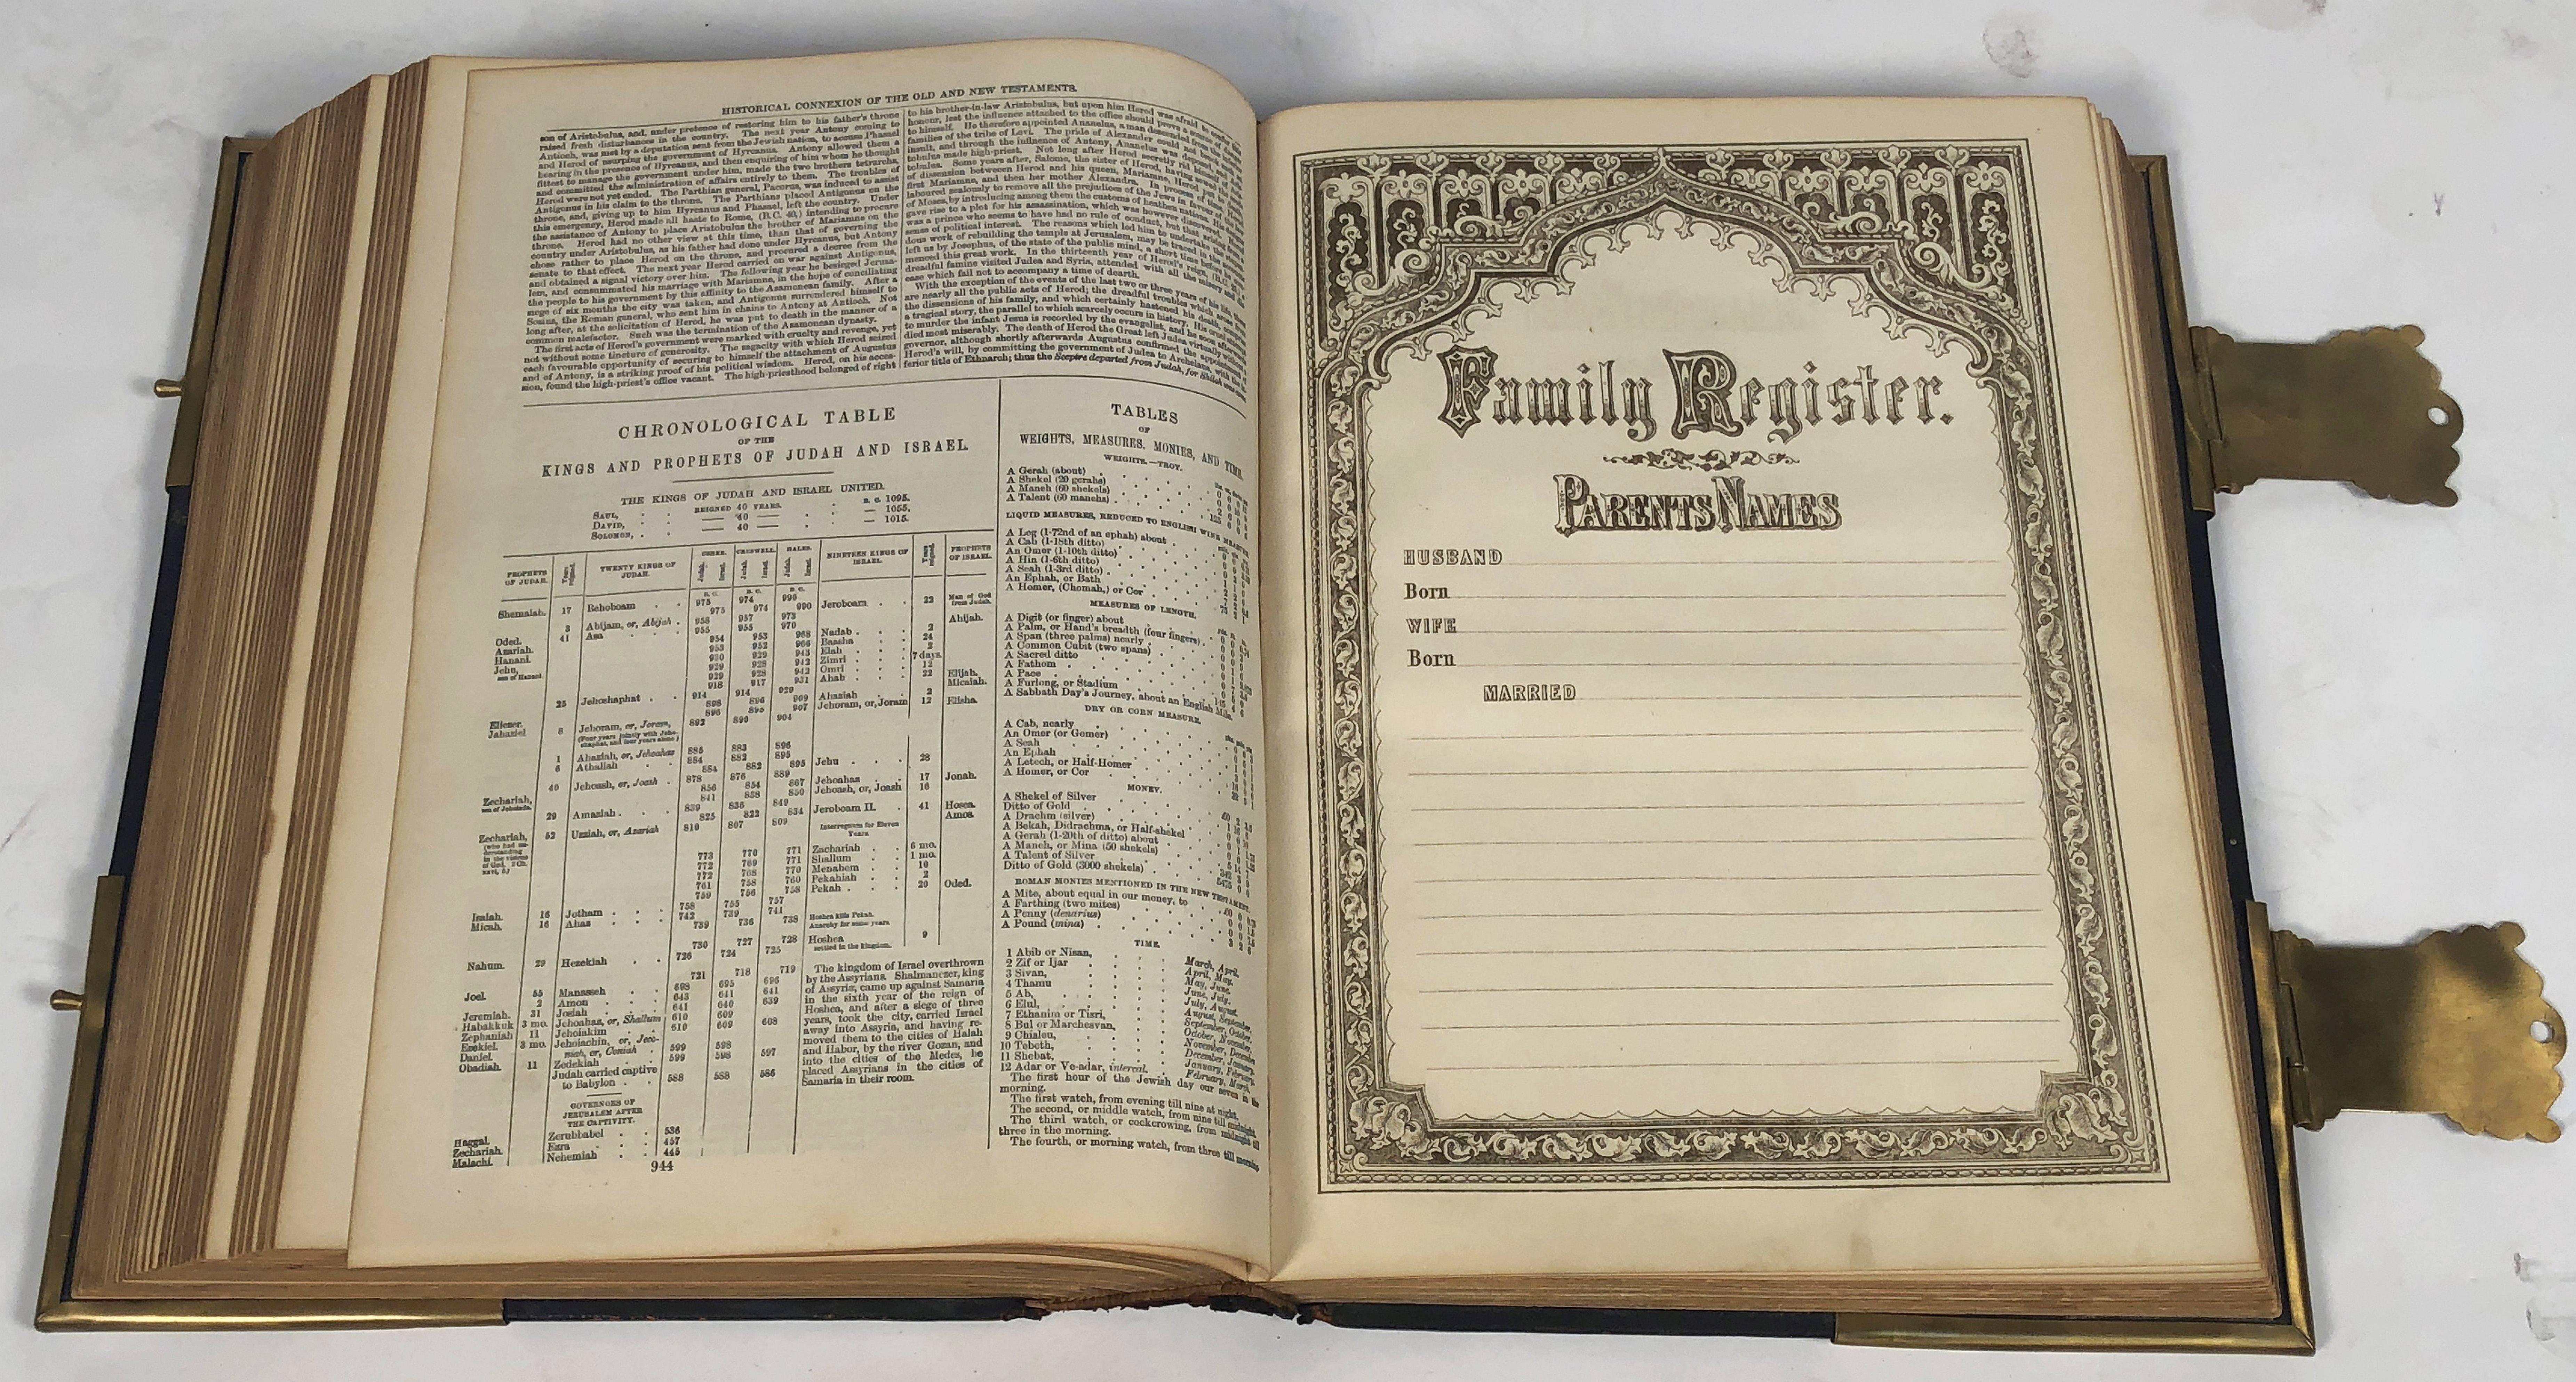 HISTORICAL CONNEXION OF THE OLD AND NEW TESTAMENTS.
son of Aristobulus, and, under pretence of restoring him to his father's throne
raised fresh disturbances in the country. The next year Antony coming to
Antioch, was met by a deputation sent from the Jewish nation, to accuse Phasael
and Herod of usurping the government of Hyrcanus. Antony allowed them a
hearing in the presence of Hyrcanus, and then enquiring of him whom he thought
fittest to manage the government under him, made the two brothers tetrarchs,
and committed the administration of affairs entirely to them. The troubles of
Herod were not yet ended. The Parthian general, Pacorus, was induced to assist
Antigonus in his claim to the throne. The Parthians placed Antigonus on the
throne, and, giving up to him Hyrcanus and Phasael, left the country. Under
this emergency, Herod made all haste to Rome, (B.C. 40,) intending to procure
the assistance of Antony to place Aristobulus the brother of Mariamne on the
throne. Herod had no other view at this time, than that of governing the
country under Aristobulus, as his father had done under Hyrcanus, but Antony
chose rather to place Herod on the throne, and procured a decree from the
senate to that effect. The next year Herod carried on war against Antigonus,
and obtained a signal victory over him. The following year he besieged Jerusa-
lem, and consummated his marriage with Mariamne, in the hope of conciliating
the people to his government by this affinity to the Asamonean family. After a
siege of six months the city was taken, and Antigonus surrendered himself to
Sosius, the Roman general, who sent him in chains to Antony at Antioch. Not
long after, at the solicitation of Herod, he was put to death in the manner of a
common malefactor. Such was the termination of the Asamonean dynasty.
The first acts of Herod's government were marked with cruelty and revenge, yet
not without some tincture of generosity. The sagacity with which Herod seized
each favourable opportunity of securing to himself the attachment of Augustus
and of Antony, is a striking proof of his political wisdom. Herod, on his acces-
sion, found the high-priest's office vacant. The high-priesthood belonged of right
to his brother-in-law Aristobulus, but upon him Herod was afraid to
honour, lest the influence attached to the office should prove a
to himself. He therefore appointed Ananelus, a man descended from the
families of the tribe of Levi. The pride of Alexander could not
insult, and through the influence of Antony, Ananelus was deposed, and
tobulus made high-priest. Not long after Herod secretly rid himself of
tobulus. Some years after, Salome, the sister of Herod, having
of dissension between Herod and his queen, Mariamne, Herod put to
first Mariamne, and then her mother Alexandra. In process of time, Herod
laboured zealously to remove all the prejudices of the Jews in favour of
of Moses, by introducing among them the customs of heathen nations.
gave rise to a plot for his assassination, which was however discovered.
was a prince who seems to have had no rule of conduct, but that
sense of political interest. The reasons which led him to undertake the
dous work of rebuilding the temple at Jerusalem, may be traced in the
left us by Josephus, of the state of the public mind, a short time before he
menced this great work. In the thirteenth year of Herod's reign,
dreadful famine visited Judea and Syria, attended with all the misery and
ease which fail not to accompany a time of dearth.
With the exception of the events of the last two or three years of his life,
are nearly all the public acts of Herod; the dreadful troubles which
the dissensions of his family, and which certainly hastened his death,
a tragical story, the parallel to which scarcely occurs in history. His
to murder the infant Jesus is recorded by the evangelist, and he soon
died most miserably. The death of Herod the Great left Judea virtually
governor, although shortly afterwards Augustus confirmed the
Herod's will, by committing the government of Judea to Archelaus, with the
ferior title of Ethnarch; thus the Sceptre departed from Judah, for Shiloh
CHRONOLOGICAL TABLE
OF THE
KINGS AND PROPHETS OF JUDAH AND ISRAEL
THE KINGS OF JUDAH AND ISRAEL UNITED.
SAUL, REIGNED 40 YEARS. B. C. 1095.
DAVID, — 40 — — 1055.
SOLOMON, — 40 — — 1015.
PROPHETS OF JUDAH. Years reigned. TWENTY KINGS OF JUDAH. USHER. CRESWELL. HALES. NINETEEN KINGS OF ISRAEL. Years reigned. PROPHETS OF ISRAEL.
Judah. Israel. Judah. Israel. Judah. Israel.
B. C. B. C. B. C.
Shemaiah. 17 Rehoboam 975 974 990
975 974 990 Jeroboam 22 Man of God from Judah.
Ahijah.
3 Abijam, or, Abijah 958 957 973
Oded. 41 Asa 955 955 970
Azariah. 954 953 968 Nadab 2
Hanani. 953 952 966 Baasha 24
Jehu, son of Hanani. 930 929 943 Elah 2
929 928 942 Zimri 7 days.
929 928 942 Omri 12
918 917 931 Ahab 22 Elijah.
Micaiah.
25 Jehoshaphat 914 914 929
898 896 909 Ahaziah 2
896 895 907 Jehoram, or, Joram 12 Elisha.
Eliezer. 8 Jehoram, or, Joram, 892 890 904
Jahaziel (Four years jointly with Jeho-
shaphat, and four years alone)
1 Ahaziah, or, Jehoahaz 885 883 896
6 Athaliah 884 882 895
884 882 895 Jehu 28
40 Jehoash, or, Joash 878 876 889
856 854 867 Jehoahaz 17 Jonah.
841 838 850 Jehoash, or, Joash 16
Zechariah, son of Jehoiada.
29 Amaziah 839 836 849
825 822 834 Jeroboam II. 41 Hosea.
Amos.
Zechariah, 52 Uzziah, or, Azariah 810 807 809
(who had un-
derstanding
in the visions
of God, 2 Ch.
xxvi, 5.)
Interregnum for Eleven
Years
773 770 771 Zachariah 6 mo.
772 769 771 Shallum 1 mo.
772 768 770 Menahem 10
761 758 760 Pekahiah 2
759 756 758 Pekah 20 Oded.
Isaiah. 16 Jotham 758 755 757
Micah. 16 Ahaz 742 739 741
739 736 738 Hoshea kills Pekah.
Anarchy for some years.
730 727 728 Hoshea 9
settled in the kingdom.
Nahum. 29 Hezekiah 726 724 725
721 718 719
Joel. 55 Manasseh 698 695 696
2 Amon 643 641 641
Jeremiah. 31 Josiah 641 640 639
Habakkuk 3 mo. Jehoahaz, or, Shallum 610 609
Zephaniah 11 Jehoiakim 610 609 608
Ezekiel. 3 mo. Jehoiachin, or, Jeco-
Daniel. niah, or, Coniah 599 598
Obadiah. 11 Zedekiah 599 598 597
Judah carried captive
to Babylon 588 588 586
The kingdom of Israel overthrown
by the Assyrians. Shalmanezer, king
of Assyria, came up against Samaria
in the sixth year of the reign of
Hoshea, and after a siege of three
years, took the city, carried Israel
away into Assyria, and having re-
moved them to the cities of Halah
and Habor, by the river Gozan, and
into the cities of the Medes, he
placed Assyrians in the cities of
Samaria in their room.
GOVERNORS OF
JERUSALEM AFTER
THE CAPTIVITY.
Haggai. Zerubbabel 536
Zechariah. Ezra 457
Malachi. Nehemiah 445
944
TABLES
OF
WEIGHTS, MEASURES, MONIES, AND TIME.
WEIGHTS.—TROY.
A Gerah (about)
A Shekel (20 gerahs)
A Maneh (60 shekels)
A Talent (60 manehs)
LIQUID MEASURES, REDUCED TO ENGLISH WINE MEASURE
A Log (1-72nd of an ephah) about
A Cab (1-18th ditto)
An Omer (1-10th ditto)
A Hin (1-6th ditto)
A Seah (1-3rd ditto)
An Ephah, or Bath
A Homer, (Chomah,) or Cor
MEASURES OF LENGTH.
A Digit (or finger) about
A Palm, or Hand's breadth (four fingers)
A Span (three palms) nearly
A Common Cubit (two spans)
A Sacred ditto
A Fathom
A Pace
A Furlong, or Stadium
A Sabbath Day's Journey, about an English Mile.
DRY OR CORN MEASURE.
A Cab, nearly
An Omer (or Gomer)
A Seah
An Ephah
A Letech, or Half-Homer
A Homer, or Cor
MONEY.
A Shekel of Silver
Ditto of Gold
A Drachm (silver)
A Bekah, Didrachma, or Half-shekel
A Gerah (1-20th of ditto) about
A Maneh, or Mina (50 shekels)
A Talent of Silver
Ditto of Gold (3000 shekels)
ROMAN MONIES MENTIONED IN THE NEW TESTAMENT.
A Mite, about equal in our money, to
A Farthing (two mites)
A Penny (denarius)
A Pound (mina)
TIME.
1 Abib or Nisan, March, April.
2 Zif or Ijar April, May.
3 Sivan, May, June.
4 Thamu June, July.
5 Ab, July, August.
6 Elul, August, September.
7 Ethanim or Tisri, September, October.
8 Bul or Marchesvan, October, November.
9 Chisleu, November, December
10 Tebeth, December, January.
11 Shebat, January, February.
12 Adar or Ve-adar, intercal. February, March.
The first hour of the Jewish day our seven in the
morning.
The first watch, from evening till nine at night.
The second, or middle watch, from nine till midnight.
The third watch, or cockcrowing, from midnight till
three in the morning.
The fourth, or morning watch, from three till morning
Family Register.
PARENTS NAMES
HUSBAND
Born
WIFE
Born
MARRIED